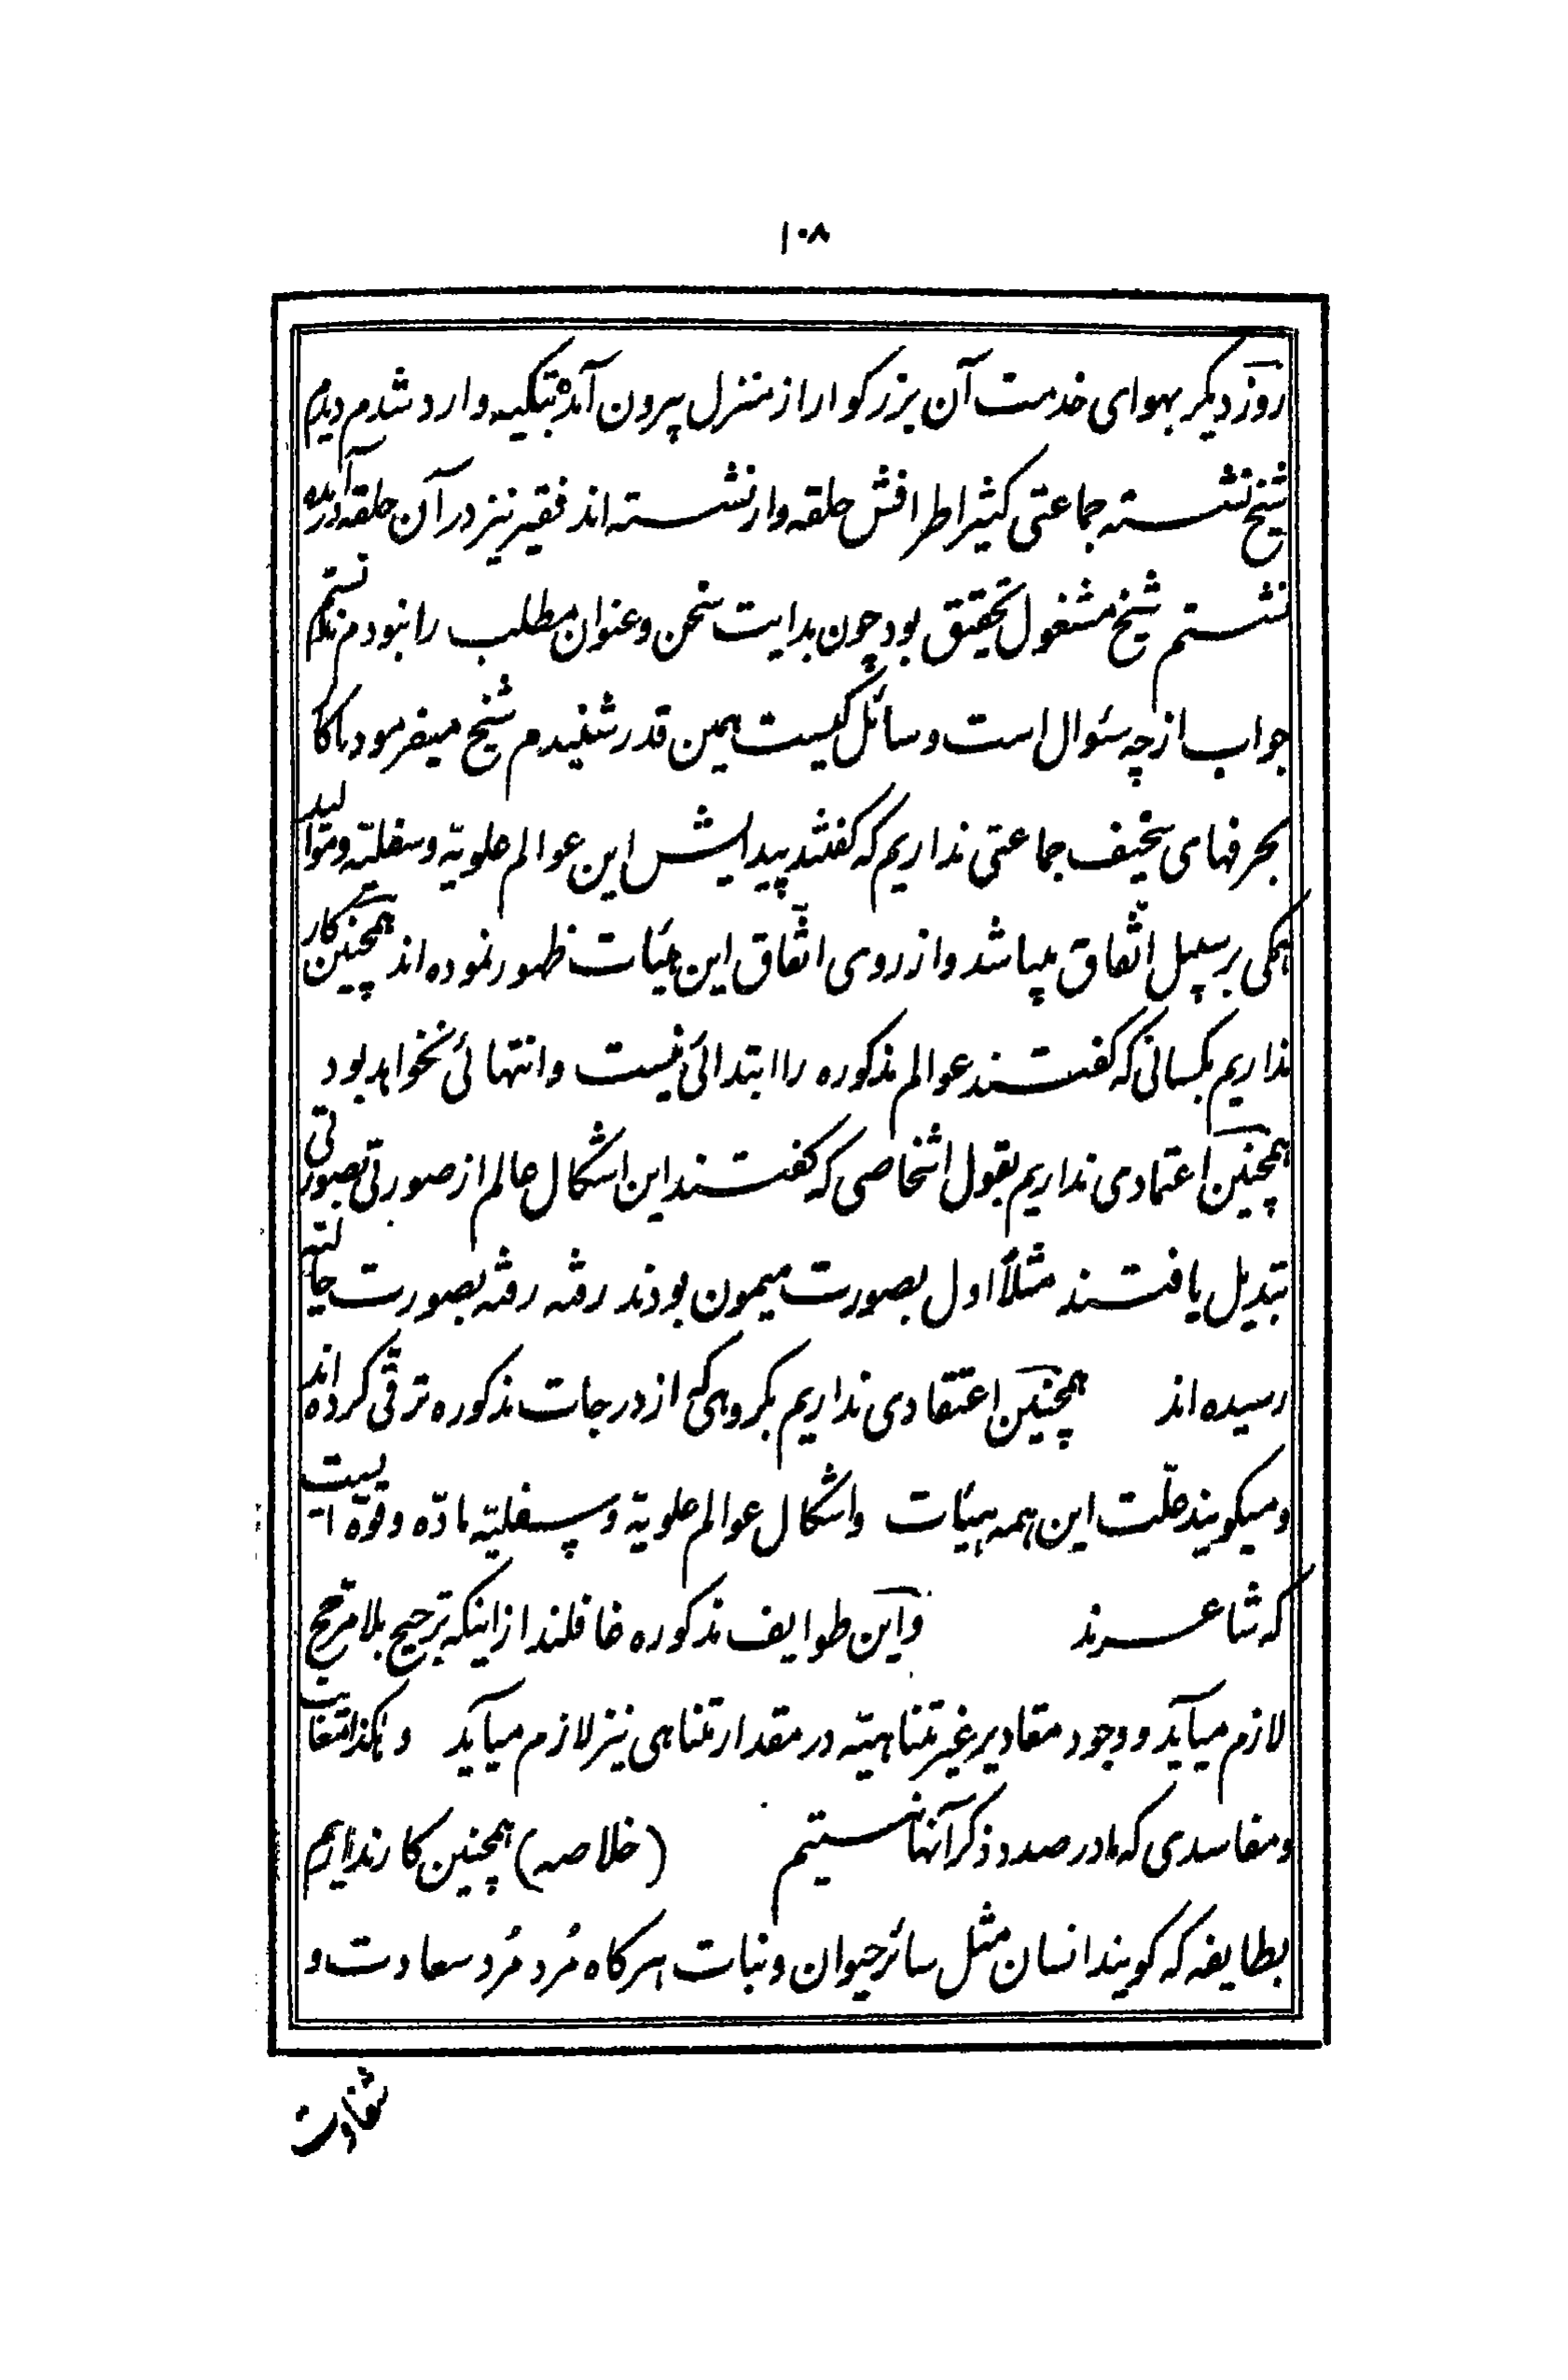 ۱۰۸
روز دیکر بهوای خدمت آن بزرکوار از منزل بیرون آمده بتکیه وارد شدم دیدم
شیخ نشسته جماعتی کثیر اطرافش حلقه وار نشسته اند فقیر نیز در آن حلقه درآمده
نشستم شیخ مشغول تحقیق بود چون بدایت سخن و عنوان مطلب را نبودم ندانستم
جواب از چه سئوال است و سائل کیست همین قدر شنیدم شیخ میفرمود ما کار
بحرفهای سخیف جماعتی نداریم که کفتند پیدایش این عوالم علویّه و سفلیّه و موالید
همکی بر سبیل اتّفاق میباشد و از روی اتّفاق این هیئات ظهور نموده اند همچنین کاری
نداریم بکسانی که کفتند عوالم مذکوره را ابتدائی نیست و انتهائی نخواهد بود
همچنین اعتمادی نداریم بقول اشخاصی که کفتند این اشکال عالم از صورتی بصورتی
تبدیل یافتند مثلاً اول بصورت میمون بودند رفته رفته بصورت حالته
رسیده اند همچنین اعتقادی نداریم بکروهی که از درجات مذکوره ترقّی کرده اند
و میکویند علّت این همه هیئات و اشکال عوالم علویّه و سفلیّه مادّه و قوّه ایست
که شاعرند و این طوایف مذکوره غافلند از اینکه ترجیح بلا مرجح
لازم میآید و وجود مقادیر غیر متناهیّه در مقدار متناهی نیز لازم میآید و هکذا تبعات
و مفاسدی که ما در صدد ذکر آنها نیستیم (خلاصه) همچنین کار نداریم
بطایفه که کویند انسان مثل سائر حیوان و نبات هرکاه مُرد مُرد سعادت و
شقاوت